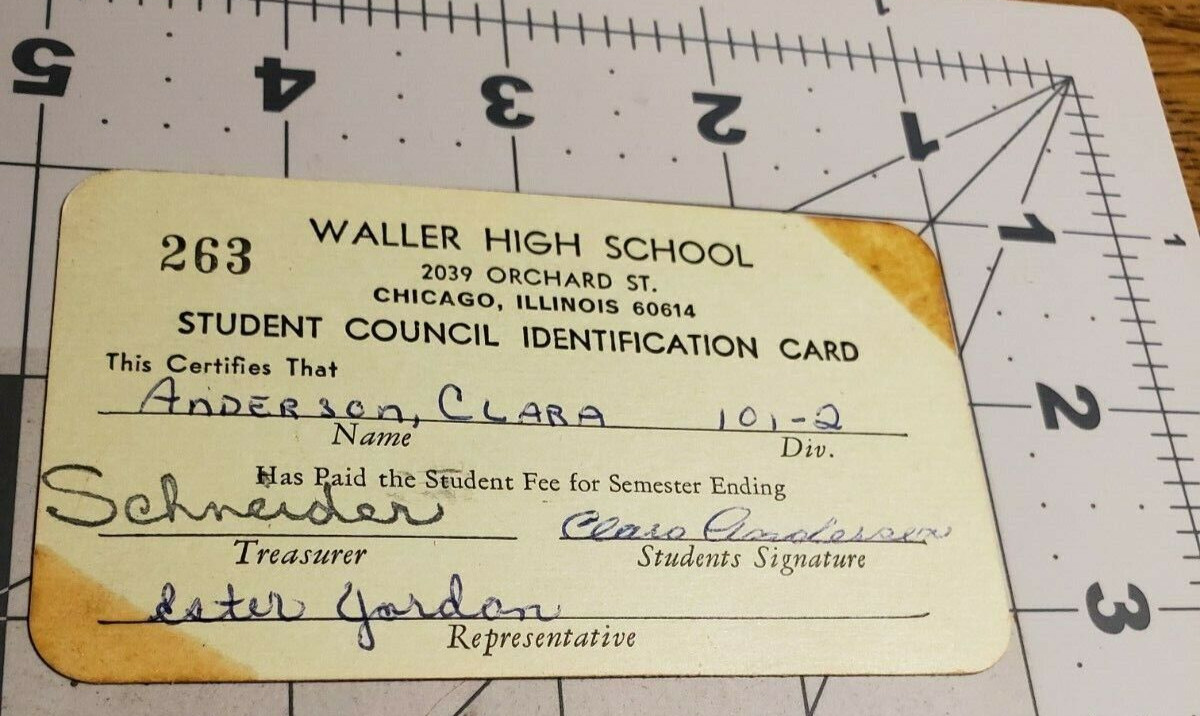 5 4 3 2 1
1
1
1
2
3
263
WALLER HIGH SCHOOL
2039 ORCHARD ST.
CHICAGO, ILLINOIS 60614
STUDENT COUNCIL IDENTIFICATION CARD
This Certifies That
ANDERSON, CLARA 101-2
Name Div.
Has Paid the Student Fee for Semester Ending
Schneider Clara Anderson
Treasurer Students Signature
Ester Yordon
Representative